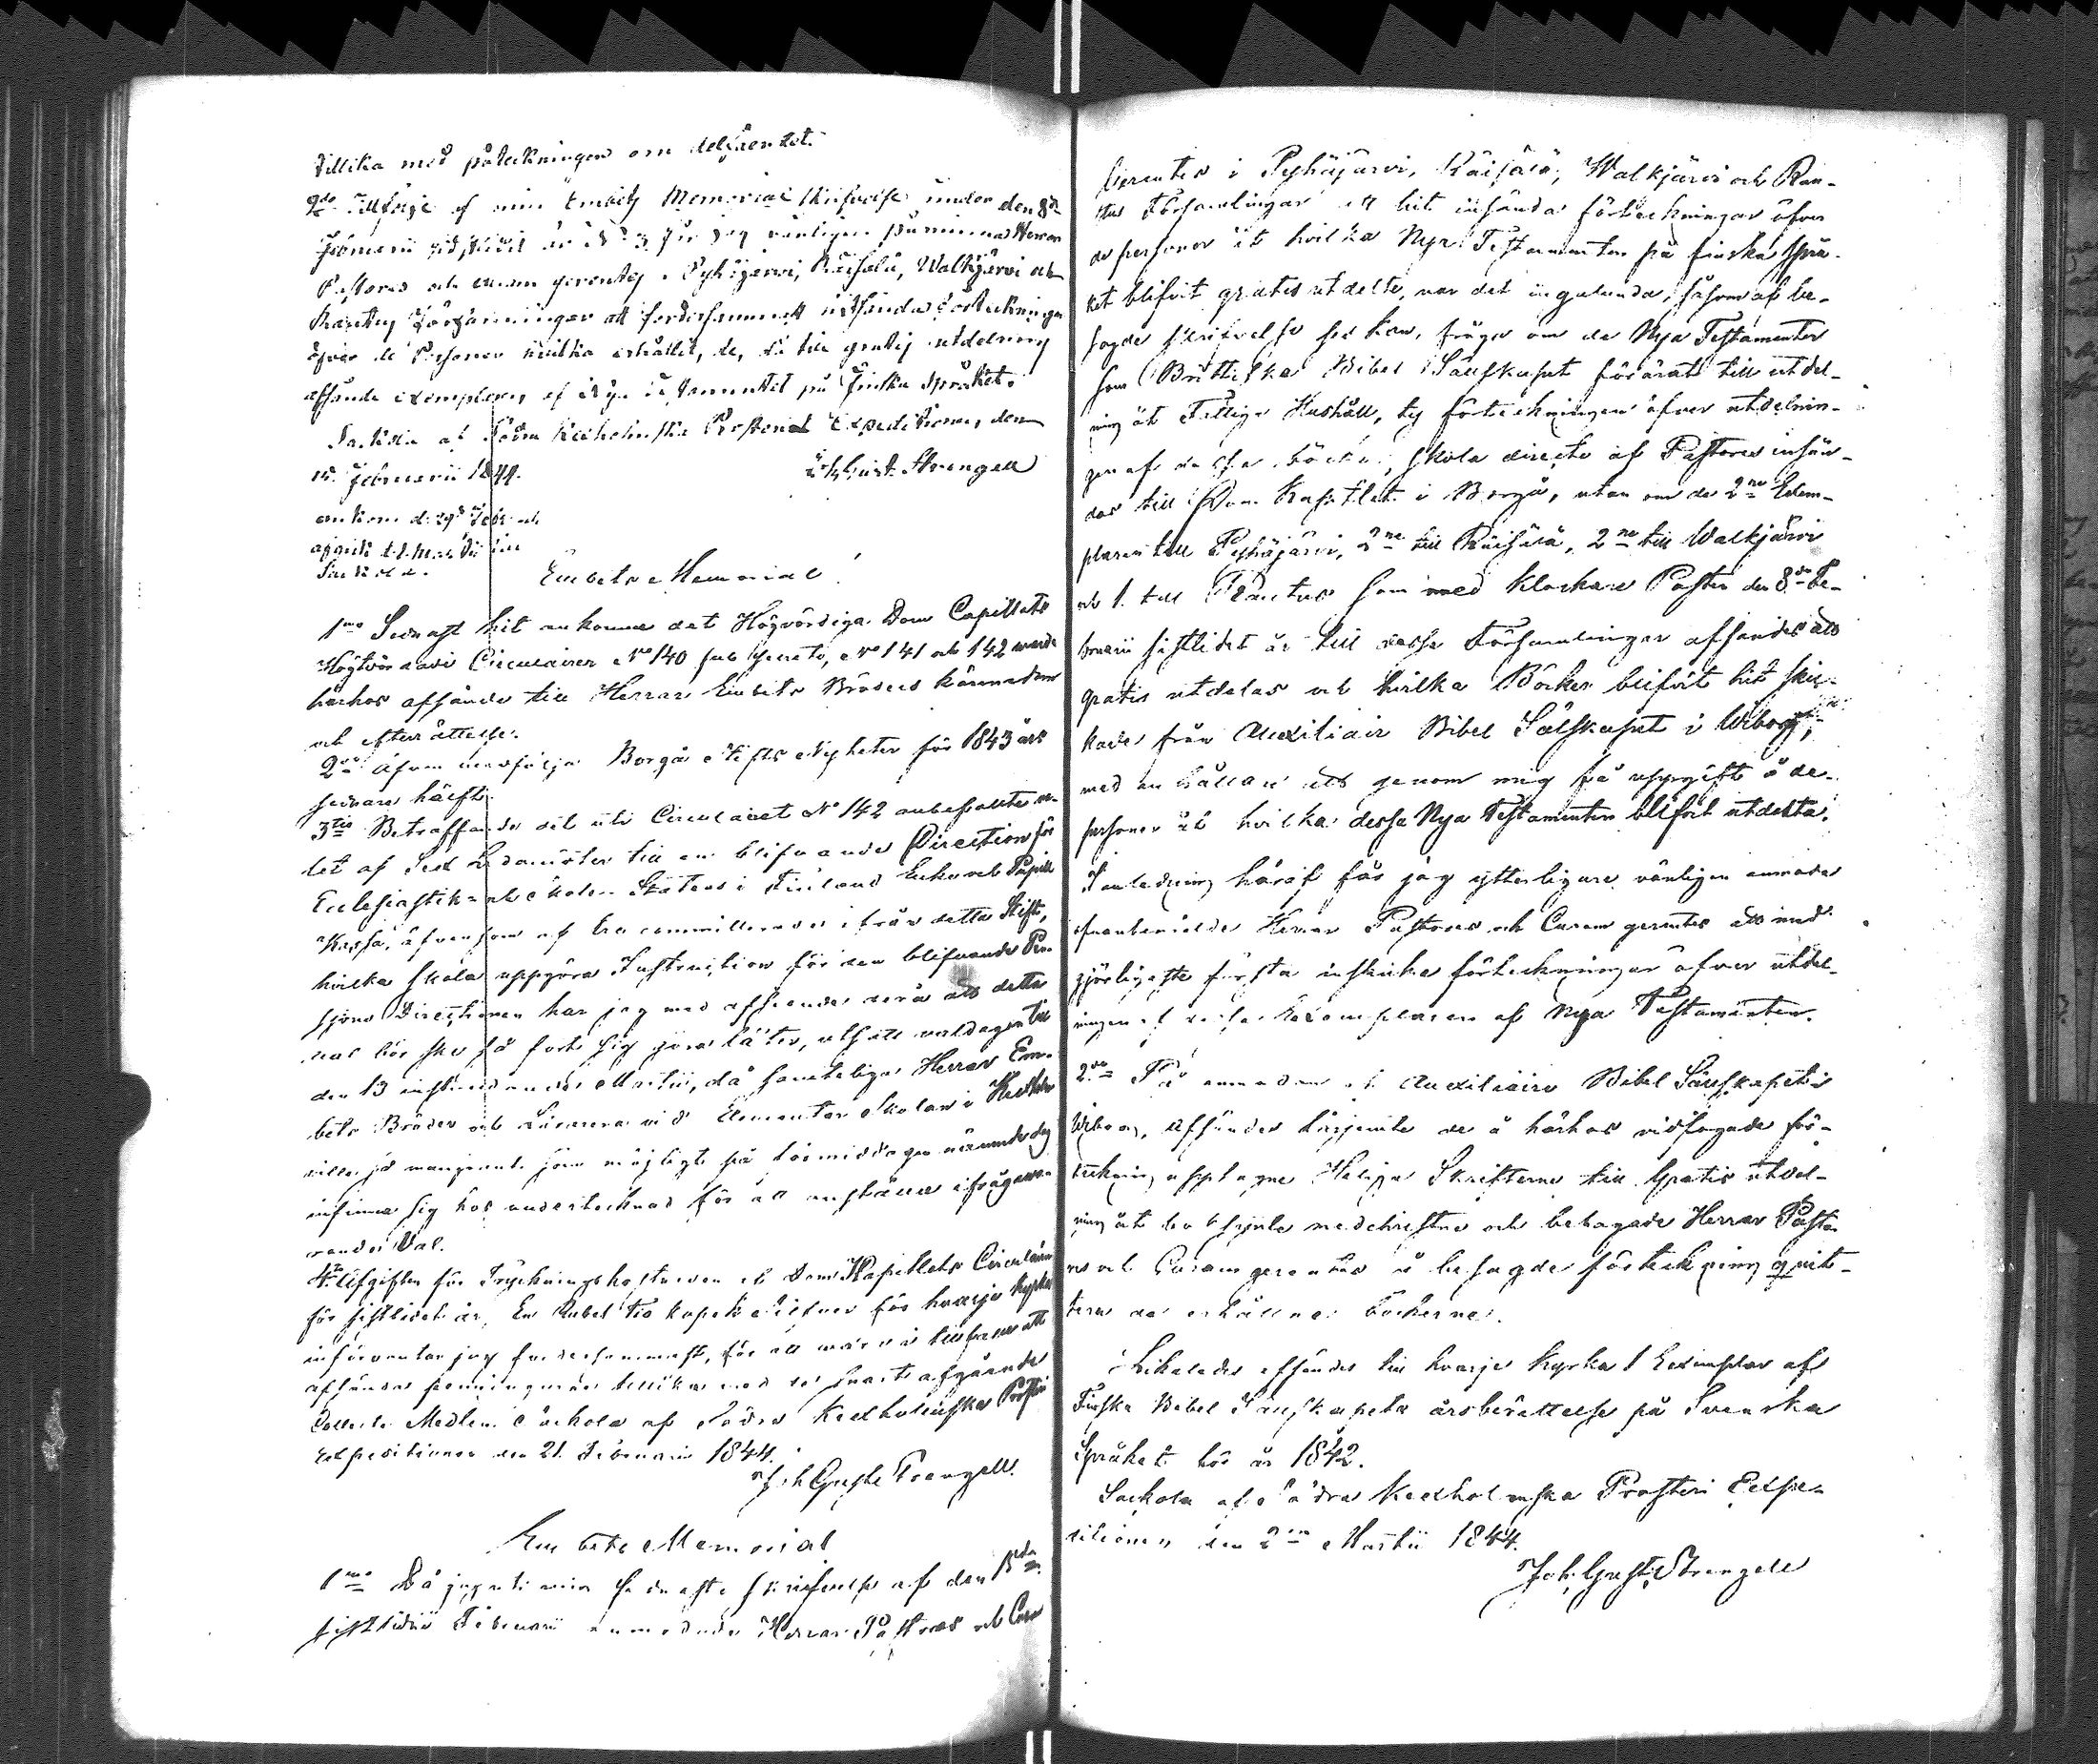 tillika med påteckningen om
2do Tillfölje af min Embets Memorial skrifvelse under den 8de
Februarii får jag vänligen påminna Herrar
Pastores och curam gerentes i Pyhäjärvi, Räisälä, Walkjärvi och
Rautus Församlingar att fordersammast insända förteckningar
öfver de Personer hvilka erhållit de till gratis utdelning
afsända exemplaren af Nya Testamentet på Finska Språket.
Sackola af Södra Kexholmska Prosteri Expeditionen, den
15 Februarii 1844. Joh. Gust. Strengell
ankom d. 29de Febr. och
afgick d. 1. Martii till
Sackola.
Embets Memorial
1mo Sednast hit ankomne det Högvördiga Dom Capitlets
Högtvördade Circulairer No 140 sub secreto, No 141 och 142 warde
härhos afsände till Herrar Embets Bröders kännedom
och efterrättelse.
2do äfven medfölja Borgå Stifts Nyheter för 1843 års
sednare hälft.
3tio Beträffande det uti Circulairet No 142 anbefallte va-
let af Sex Ledamöter till en blifvande Direction för
Ecclesiastik- och Skole-Statens i Finland Enke och Pupill
Kassa, äfvensom af tre committerade ifrån detta Stift,
hvilka skola uppgöra Instruction för den blifvande Pen-
sions Directionen har jag med afseende derå att detta
val bör ske så fort sig göra låter, utsatt valdagen till
den 13 instundande Martii, då samtelige Herrar Em-
bets Bröder och Lärarena vid Elementar Skolan i Kexholm
ville så mangrant som möjligt på förmiddagen nämnde dag
infinna sig hos undertecknad för att anställa ifrågava-
rande Val.
4to Afgiften för Tryckningskostnaden af Dom Kapitlets Circulairer
för sistlidet år, En Rubel tio kopek Silfver för hvarje kyrka
införväntar jag fordersammast, för att vara i tillfälle att
afsända penningarne tillika med de snart afgående
Collecte Medlen. Sackola af Södra Kexholmska Prosteri
Expeditionen den 21 Februarii 1844.
Joh Gust Strengell.
Embets Memorial
1mo Då jag uti min sednaste skrifvelse af den 15de
sistlidne Februarii anmodade Herrar Pastores och Curam
Gerentes i Pyhäjärvi, Räisälä, Walkjärvi och Rau-
tus Församlingar att hit insända förteckningar öfver
de personer åt hvilka Nya Testamenter på finska språ-
ket blifvit gratis utdelte, var det ingalunda, såsom af be-
sagde skrifvelse ske kan, fråga om de Nya Testamenter
som Brittiska Bibel Sällskapet förärat till utdel-
ning åt Fattiga Hushåll, ty förteckningen öfver utdelnin-
gen af dessa böcker, skola directe af Pastores insän-
das till Dom Kapitlet i Borgå, utan om de 2ne Exem-
plaren till Pyhäjärvi, 2ne till Räisälä, 2ne till Walkjärvi
och 1. till Rautus som med Klockare Posten den 8de Fe-
bruarii sistlidet år till dessa Församlingar afsändes att
gratis utdelas och hvilka Böcker blifvit hit skic-
kade från Auxiliair Bibel Sälskapet i Wiborg,
med anhållan att genom mig få uppgift å de
personer åt hvilka dessa Nya Testamenten blifvit utdelta.
I anledning häraf får jag ytterligare vänligen anmoda
ofvanbemälde Herrar Pastores och Curam gerentes att med
görligaste första inskicka förteckningar öfver utdel-
ningen af dessa Exemplaren af Nya Testamenten.
2do På anmodan af Auxiliaire Bibel Sällskapet i
Wiborg, afsändes härjemte de å härhos vidfogade för-
teckning upptagne Heliga Skrifterne till Gratis utdel-
ning åt behöfvande medchristne och behagade Herrar Pasto-
res och Curam gerentes å besagde förteckning quit-
tera de erhållne böckerne.
Likaledes afsändes till hvarje kyrka 1 Exemplar af
Finska Bibel Sällskapets årsberättelse på Svenska
Språket för år 1842.
Sackola af Södra Kexholmska Prosteri Expe-
ditionen den 2 Martii 1844.
Joh. Gust. Strengell